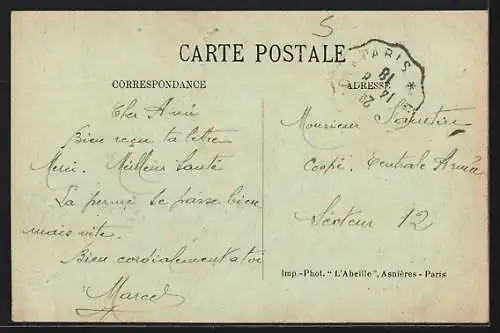 5
CARTE POSTALE
CORRESPONDANCE
ADRESSE
PARIS *
18
14 8
22
Cher Ami
Bien reçu ta lettre
Merci. Meilleur Santé
La perme se passe bien
mais vite.
Bien cordialement a toi
Marcel
Monsieur
Centrale Armée
Secteur 12
Imp.-Phot. "L'Abeille", Asnières - Paris